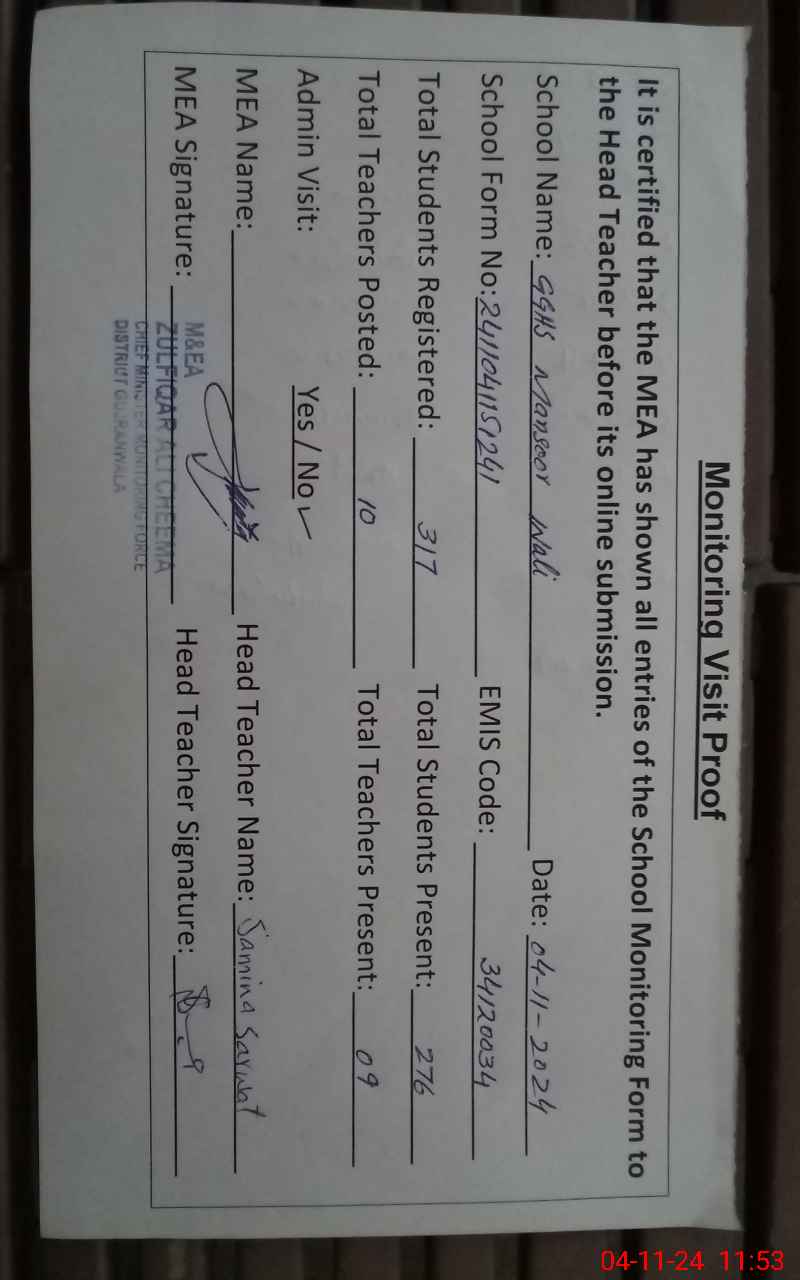 Monitoring Visit Proof
It is certified that the MEA has shown all entries of the School Monitoring Form to
the Head Teacher before its online submission.
School Name: GGHS Mansoor Wali Date: 04-11-2024
School Form No: 2411041151241 EMIS Code: 34120034
Total Students Registered: 317 Total Students Present: 276
Total Teachers Posted: 10 Total Teachers Present: 09
Admin Visit: Yes / No ✓
MEA Name: Head Teacher Name: Samina Sarwat
MEA Signature: Head Teacher Signature:
M&EA
ZULFIQAR ALI CHEEMA
CHIEF MINISTER MONITORING FORCE
DISTRICT GUJRANWALA
04-11-24 11:53